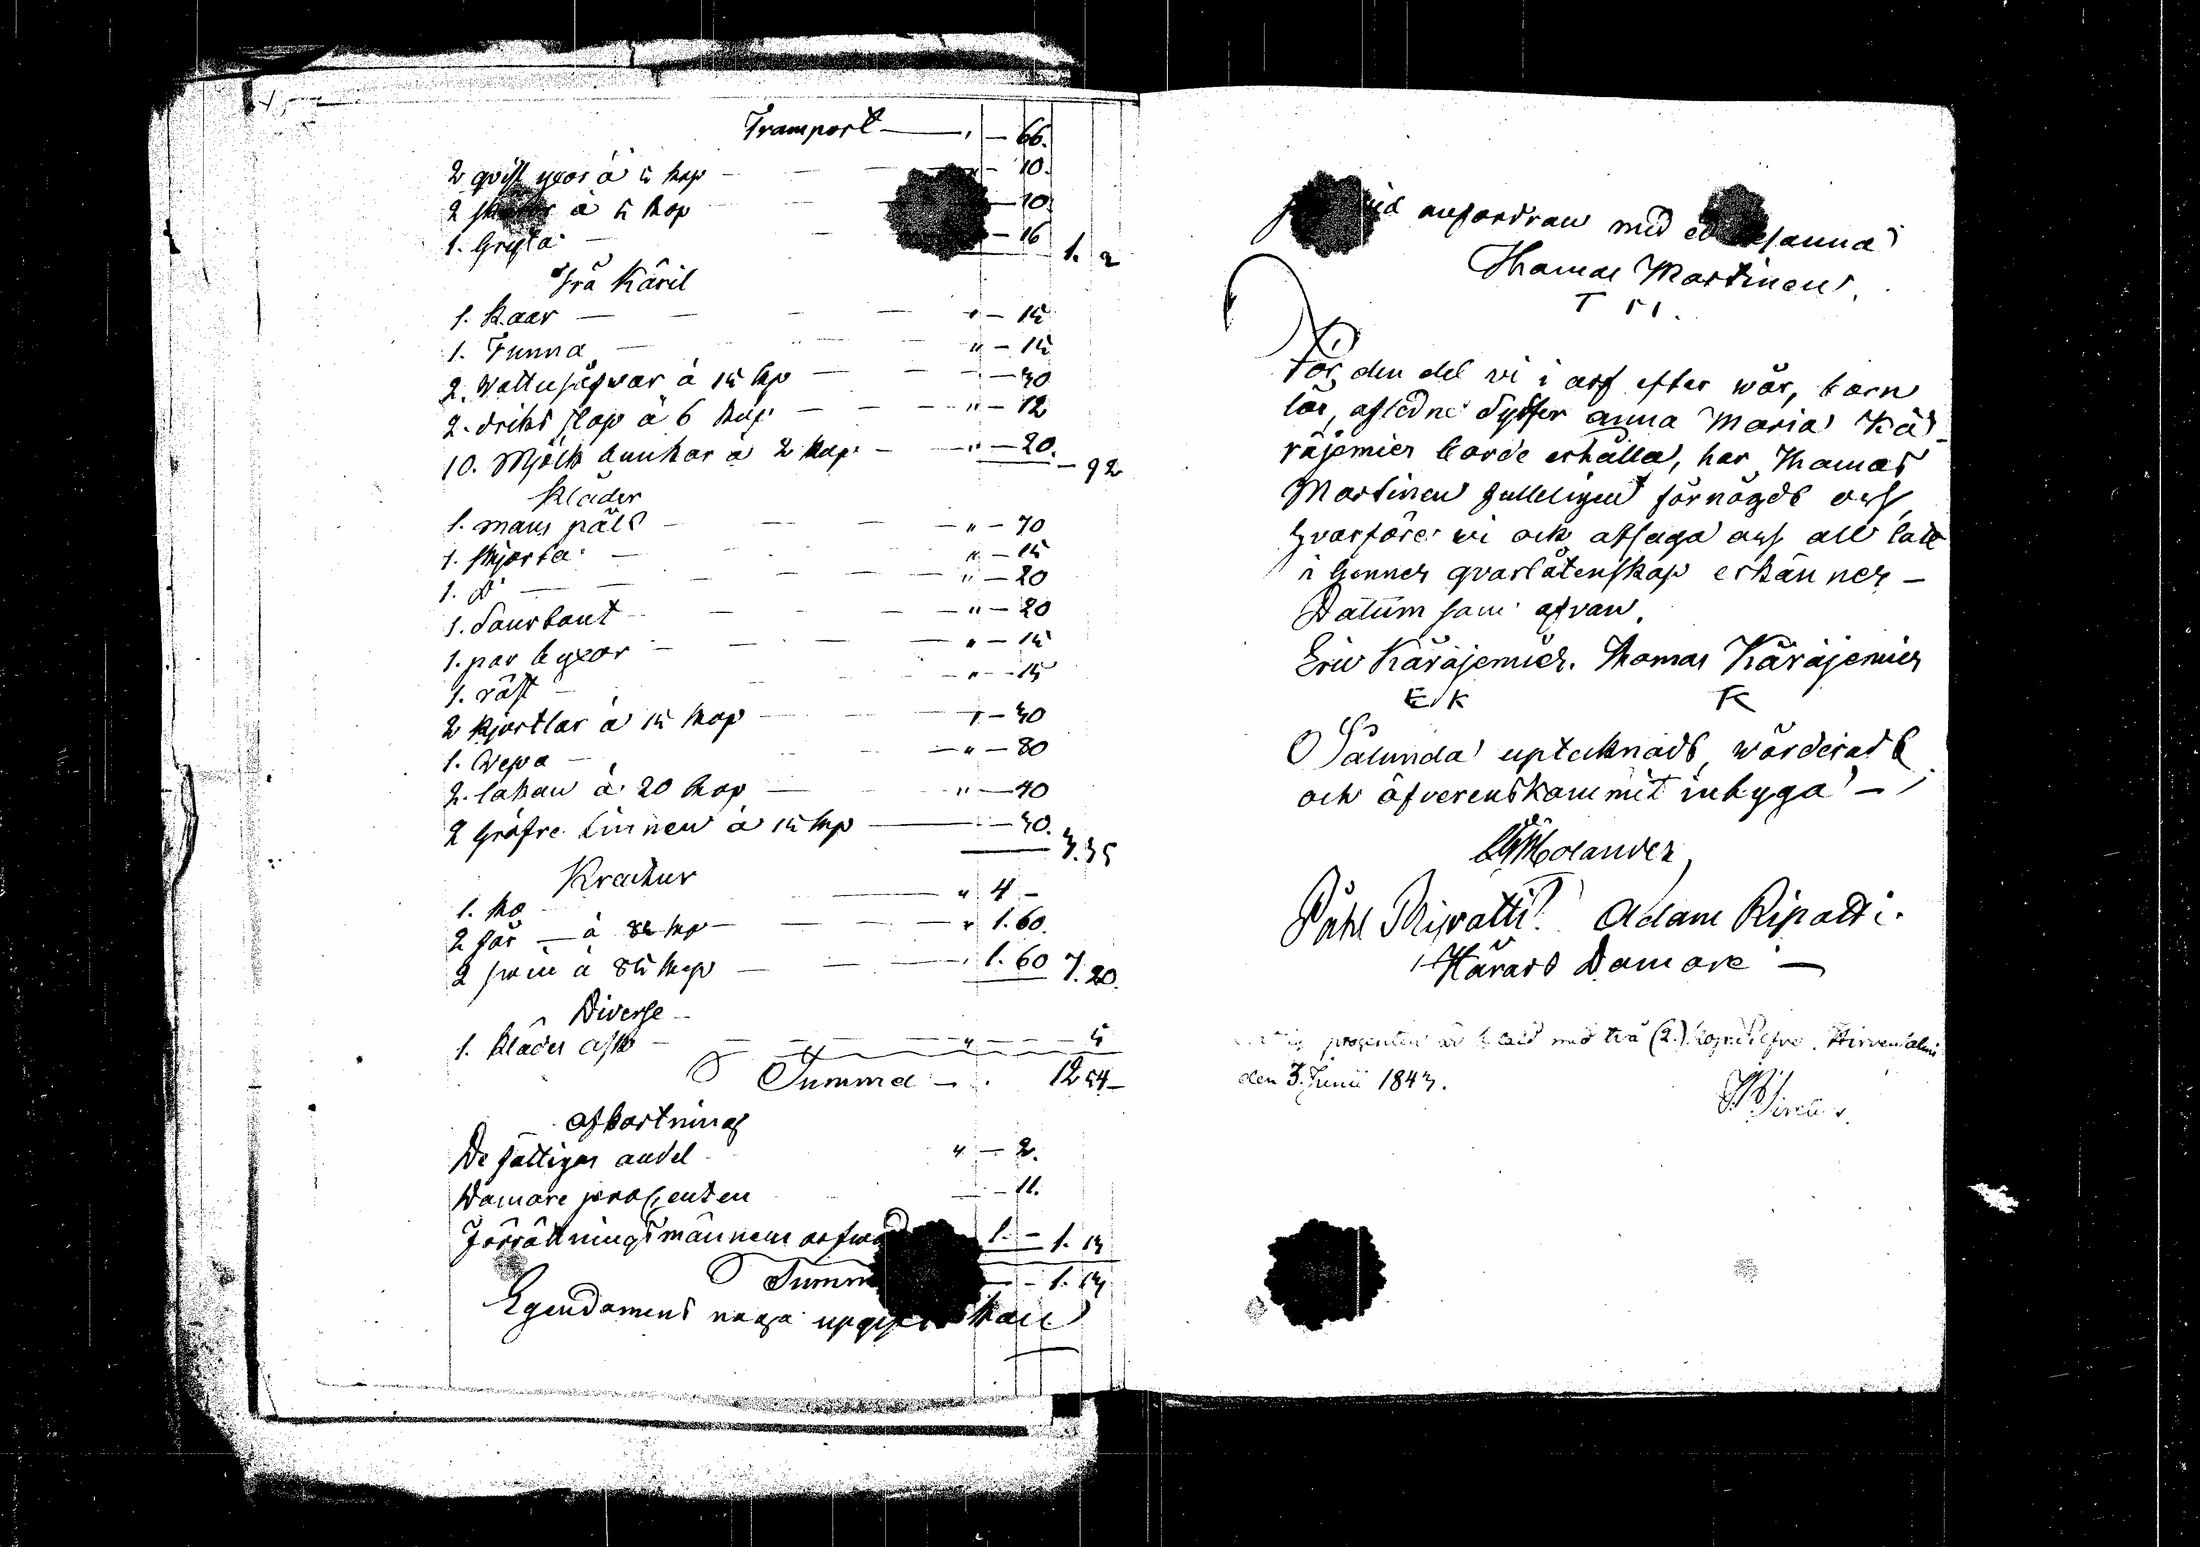 Transport — " — 66.
2 qvist yxor á 5 kop — — 10.
2 á 5 kop — 10
1. Gryta — — 16 1. 2
Trä Käril
1. Kaar — — — " — 15
1. Tunna — " — 15
2. Wattusåfwar á 15 kp — — 30
2. driks stop á 6 kop — — " — 12
10. Mjölk bunkar á 2 kop — " — 20. — 92
Kläder
1. mans päls — — " — 70
1. skjorta — " — 15
1. D° — — " — 20
1. — — " — 20
1. par byxor — — " — 15
1. väst — " — 15
2 kjortlar á 15 kop — " — 30
1. — " — 80
2. lakan á 20 kop — " — 40
2 gröfre linnen á 15 kop — — 30. 3.35
Kreatur
1. ko — " 4 —
2 får — á 80 kop — " 1.60.
2 svin á 80 kop — — 1.60 7.20.
Diverse
1. Kläder ask — — " — 5
Summa — 12 54 —
Afkortning
De fattigas andel " — 2.
Domare procenten — 11.
Förrättningsmännens arfwode 1. — 1. 13
Summa — 1. 13
Egendomens noga uppgifwit skall
anfordran med ed
Thomas Martinen
T M.
För den del vi i arf efter vår, barn
lös, aflidne Syster Anna Maria Kä-
räjemies borde erhålla, har Thomas
Martinen fulleligen förnögdt oss,
hvarföre vi ock afsaga oss all lott
i hennes qvarlåtenskap erkännes —
Datum som ofvan.
Eric Käräjemies. Thomas Käräjemies
E K TK
Sålunda uptecknadt, wärderadt
och öfverenskommit intyga —
Molander,
Påhl Ripatti. Adam Ripatti.
Härads Domare —
procenten är betald med två (2.) kop: Silfve. Hirvensalmi
den 3. Junii 1843.